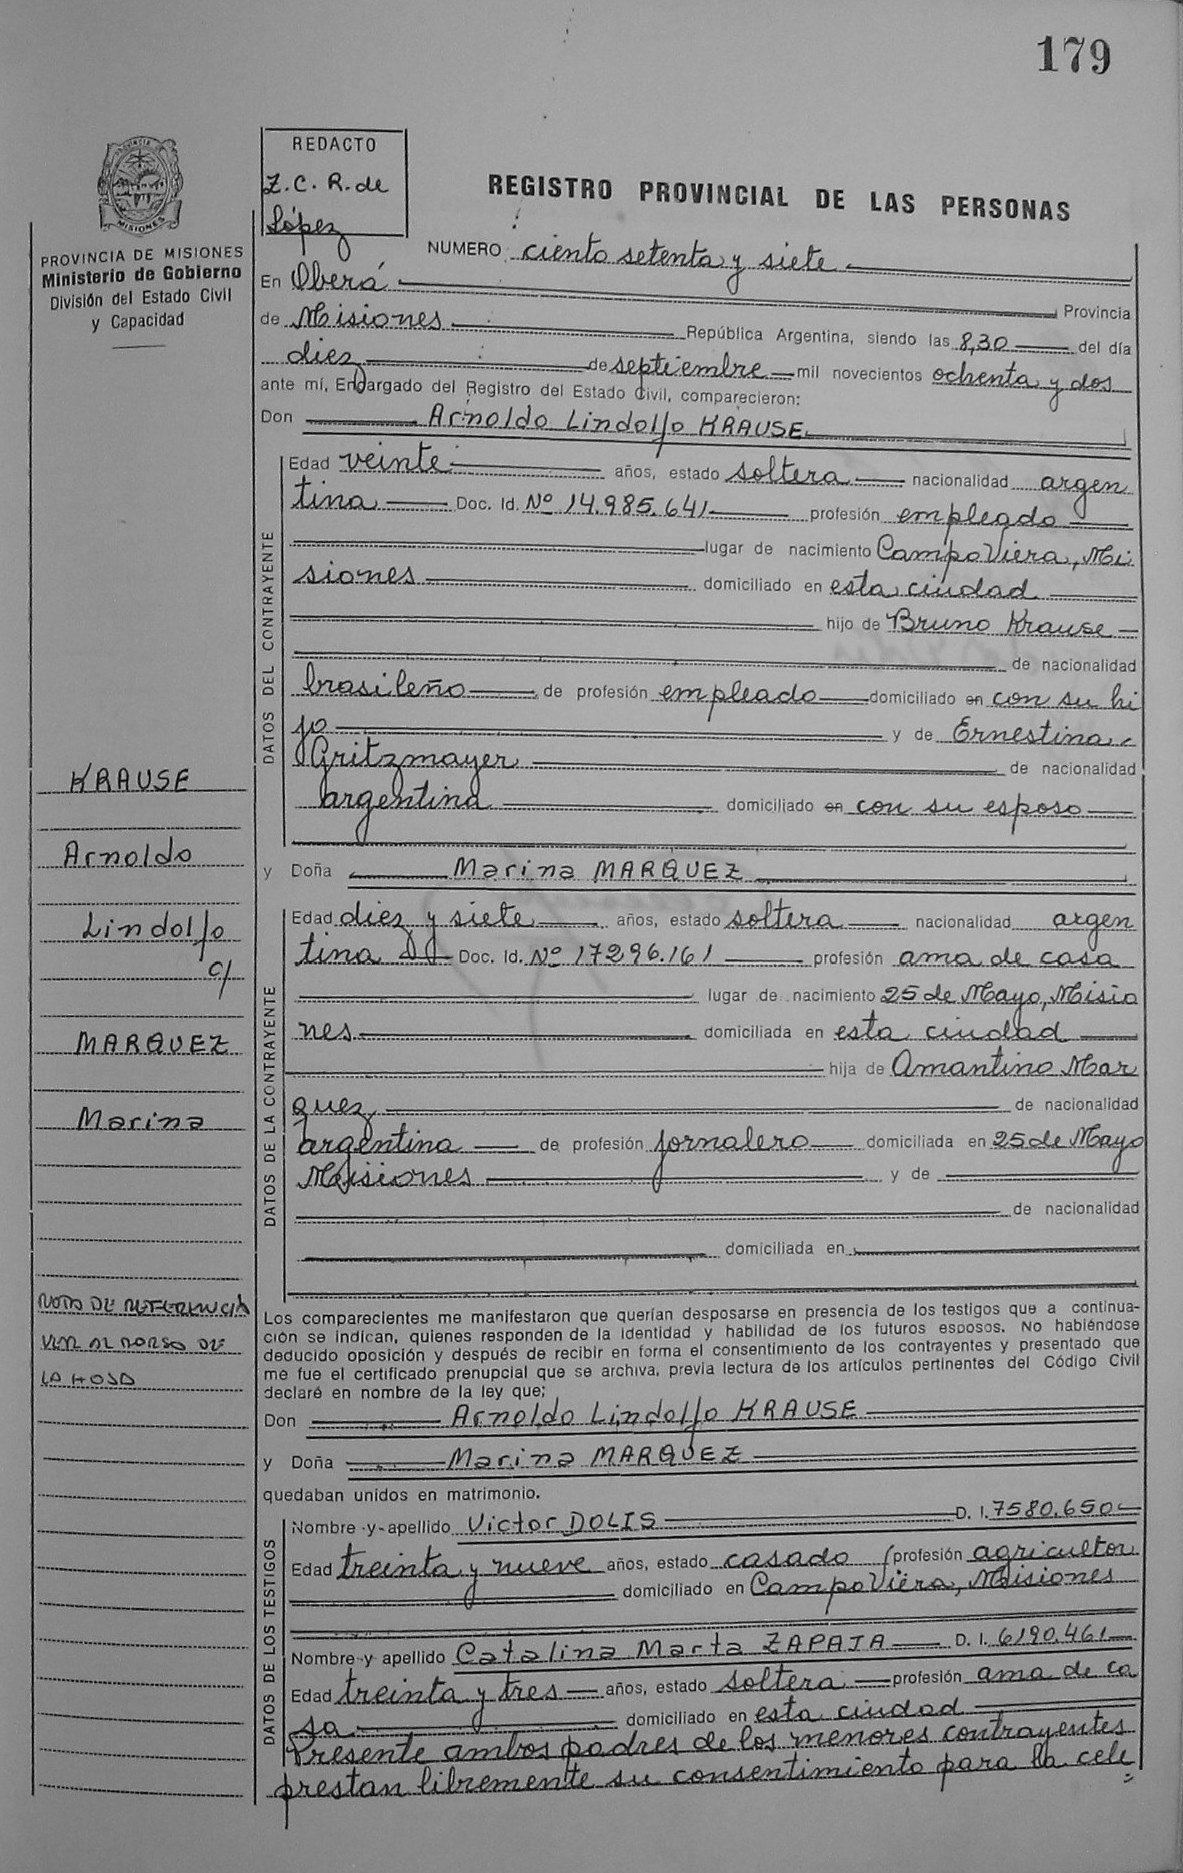 179
REDACTO
Z. C. R. de
López
PROVINCIA DE MISIONES
MISIONES
PROVINCIA DE MISIONES
Ministerio de Gobierno
División del Estado Civil
y Capacidad
REGISTRO PROVINCIAL DE LAS PERSONAS
NUMERO ciento setenta y siete
En Oberá Provincia
de Misiones República Argentina, siendo las 8,30 del día
diez de septiembre mil novecientos ochenta y dos
ante mí, Encargado del Registro del Estado Civil, comparecieron:
Don Arnoldo Lindolfo KRAUSE
DATOS DEL CONTRAYENTE
Edad veinte años, estado soltera nacionalidad argen
tina Doc. Id. Nº 14.985.641 profesión empleado
lugar de nacimiento Campo Viera, Mi
siones domiciliado en esta ciudad
hijo de Bruno Krause
de nacionalidad
brasileño de profesión empleado domiciliado en con su hi
jo y de Ernestina
Gritzmayer de nacionalidad
argentina domiciliado en con su esposo
KRAUSE
Arnoldo
Lindolfo
c/
MARQUEZ
Marina
y Doña Marina MARQUEZ
DATOS DE LA CONTRAYENTE
Edad diez y siete años, estado soltera nacionalidad argen
tina Doc. Id. Nº 17296.161 profesión ama de casa
lugar de nacimiento 25 de Mayo, Misio
nes domiciliada en esta ciudad
hija de Amantino Mar
quez de nacionalidad
argentina de profesión jornalero domiciliada en 25 de Mayo
Misiones y de
de nacionalidad
domiciliada en
NOTA DE REFERENCIA
VER AL DORSO DE
LA HOJA
Los comparecientes me manifestaron que querían desposarse en presencia de los testigos que a continua-
ción se indican, quienes responden de la identidad y habilidad de los futuros esposos. No habiéndose
deducido oposición y después de recibir en forma el consentimiento de los contrayentes y presentado que
me fue el certificado prenupcial que se archiva, previa lectura de los artículos pertinentes del Código Civil
declaré en nombre de la ley que;
Don Arnoldo Lindolfo KRAUSE
y Doña Marina MARQUEZ
quedaban unidos en matrimonio.
DATOS DE LOS TESTIGOS
Nombre y apellido Victor DOLIS D. I. 7580.650
Edad treinta y nueve años, estado casado profesión agricultor
domiciliado en Campo Viera, Misiones
Nombre y apellido Catalina Marta ZAPAJA D. I. 6190.461
Edad treinta y tres años, estado soltera profesión ama de ca
sa domiciliado en esta ciudad
Presente ambos padres de los menores contrayentes
prestan libremente su consentimiento para la cele